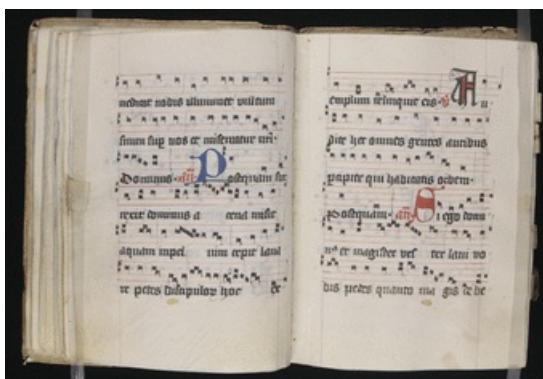 nedicat nobis illuminet vultum
suum sup nos et misereatur nri.
Dominus. an Postquam sur
rexit dominus a cena misit
aquam in pel uim cepit laua
re pedes discipulor hoc ex
emplum reliquit eis. Au
dite hec omnes gentes auribus
pcipite qui habitatis orbem.
Postquam. an Si ego domi
nus et magister ves ter laui vo
bis pedes quanto ma gis de be